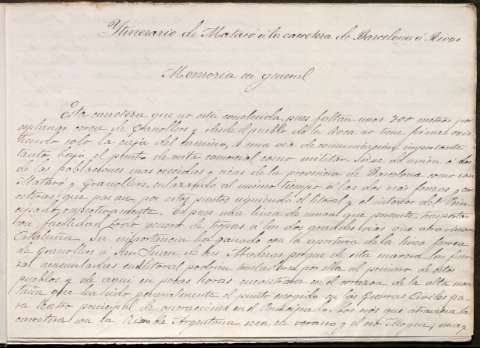 Ytinerario de Mataró á la carretera de Barcelona á Rivas
Memoria en general
Esta carretera que no está concluida, pues faltan unos 300 metros por
esplanar cerca de Granollers y desde el pueblo de la Roca no tiene firme
tiendo solo la caja del camino, es una via de comunicacion importante
tanto, bajo el punto de vista comercial como militar. Sirve de union á dos
de las poblaciones mas crecidas y ricas de la provincia de Barcelona como son
Mataró y Granollers, enlazando al mismo tiempo á las dos vias ferreas y
que pasan por estos puntos siguiendo el litoral y el interior del
respectivamente. Es pues una linea de union que permite
facilidad
Cataluña. Su importancia ha ganado con la apertura de la linea ferrea
de Granollers á San Juan de las Abadesas porque de esta manera las fuer
zas acumuladas en el litoral podrian trasladarse por ella al primero de estos
pueblos y de aqui en pocas horas encontrarse en el corazon de la alta mon
taña que ha sido generalmente el punto escogido en las guerras civiles pa
ra teatro principal de operaciones en el Principado. Los rios que atraviesa la
carretera son la Riera Argentona seca de verano y el rio Mogent, muy